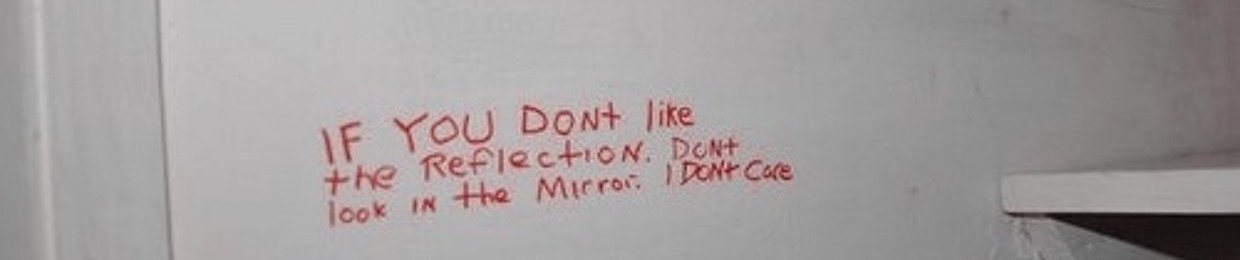 IF YOU DONt like
the Reflection. DONt
look IN the Mirror. I DONt Care